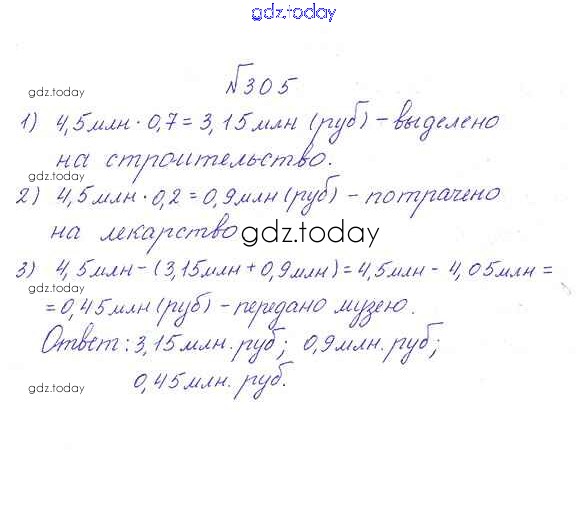 gdz.today
№305
gdz.today
1) 4,5млн · 0,7 = 3,15млн (руб) - выделено
на строительство.
gdz.today
2) 4,5млн · 0,2 = 0,9млн (руб) - потрачено
на лекарство
gdz.today
3) 4,5млн - (3,15млн + 0,9млн) = 4,5млн - 4,05млн =
gdz.today
= 0,45млн (руб) - передано музею.
Ответ: 3,15млн. руб; 0,9млн. руб;
gdz.today
0,45млн. руб.